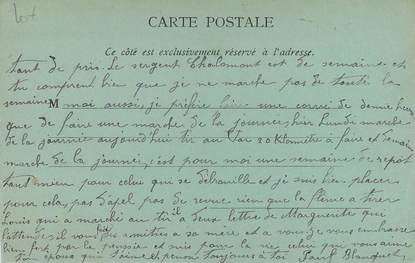 CARTE POSTALE
Ce côté est exclusivement réservé à l'adresse.
tant de pris. Le sergent Chalomont est de semaine et
tu comprent bien que je ne marche pas de toute la
semaine M moi aussi, je préfère faire une corvé de demie heure
que de faire une marche de la journee, hier Lundi marche
de la journée aujourd'hui tir au Var 20 kilomètre à faire et demain
marche de la journée, c'est pour moi une semaine de repôt
tant mieu pour celui qui se débrouille et je suis bien placer
pour cela, pas d'apel pas de revue rien que la flème a tirer
Louis qui a marché au tir il a eux lettre de Marguerite qui
amitiées a sa mère et a vous je vous embrasse
bien fort par la pensée et suis pour la vie celui qui vous aime
ton époux qui t'aime et pense toujours à toi Paul Blanquet